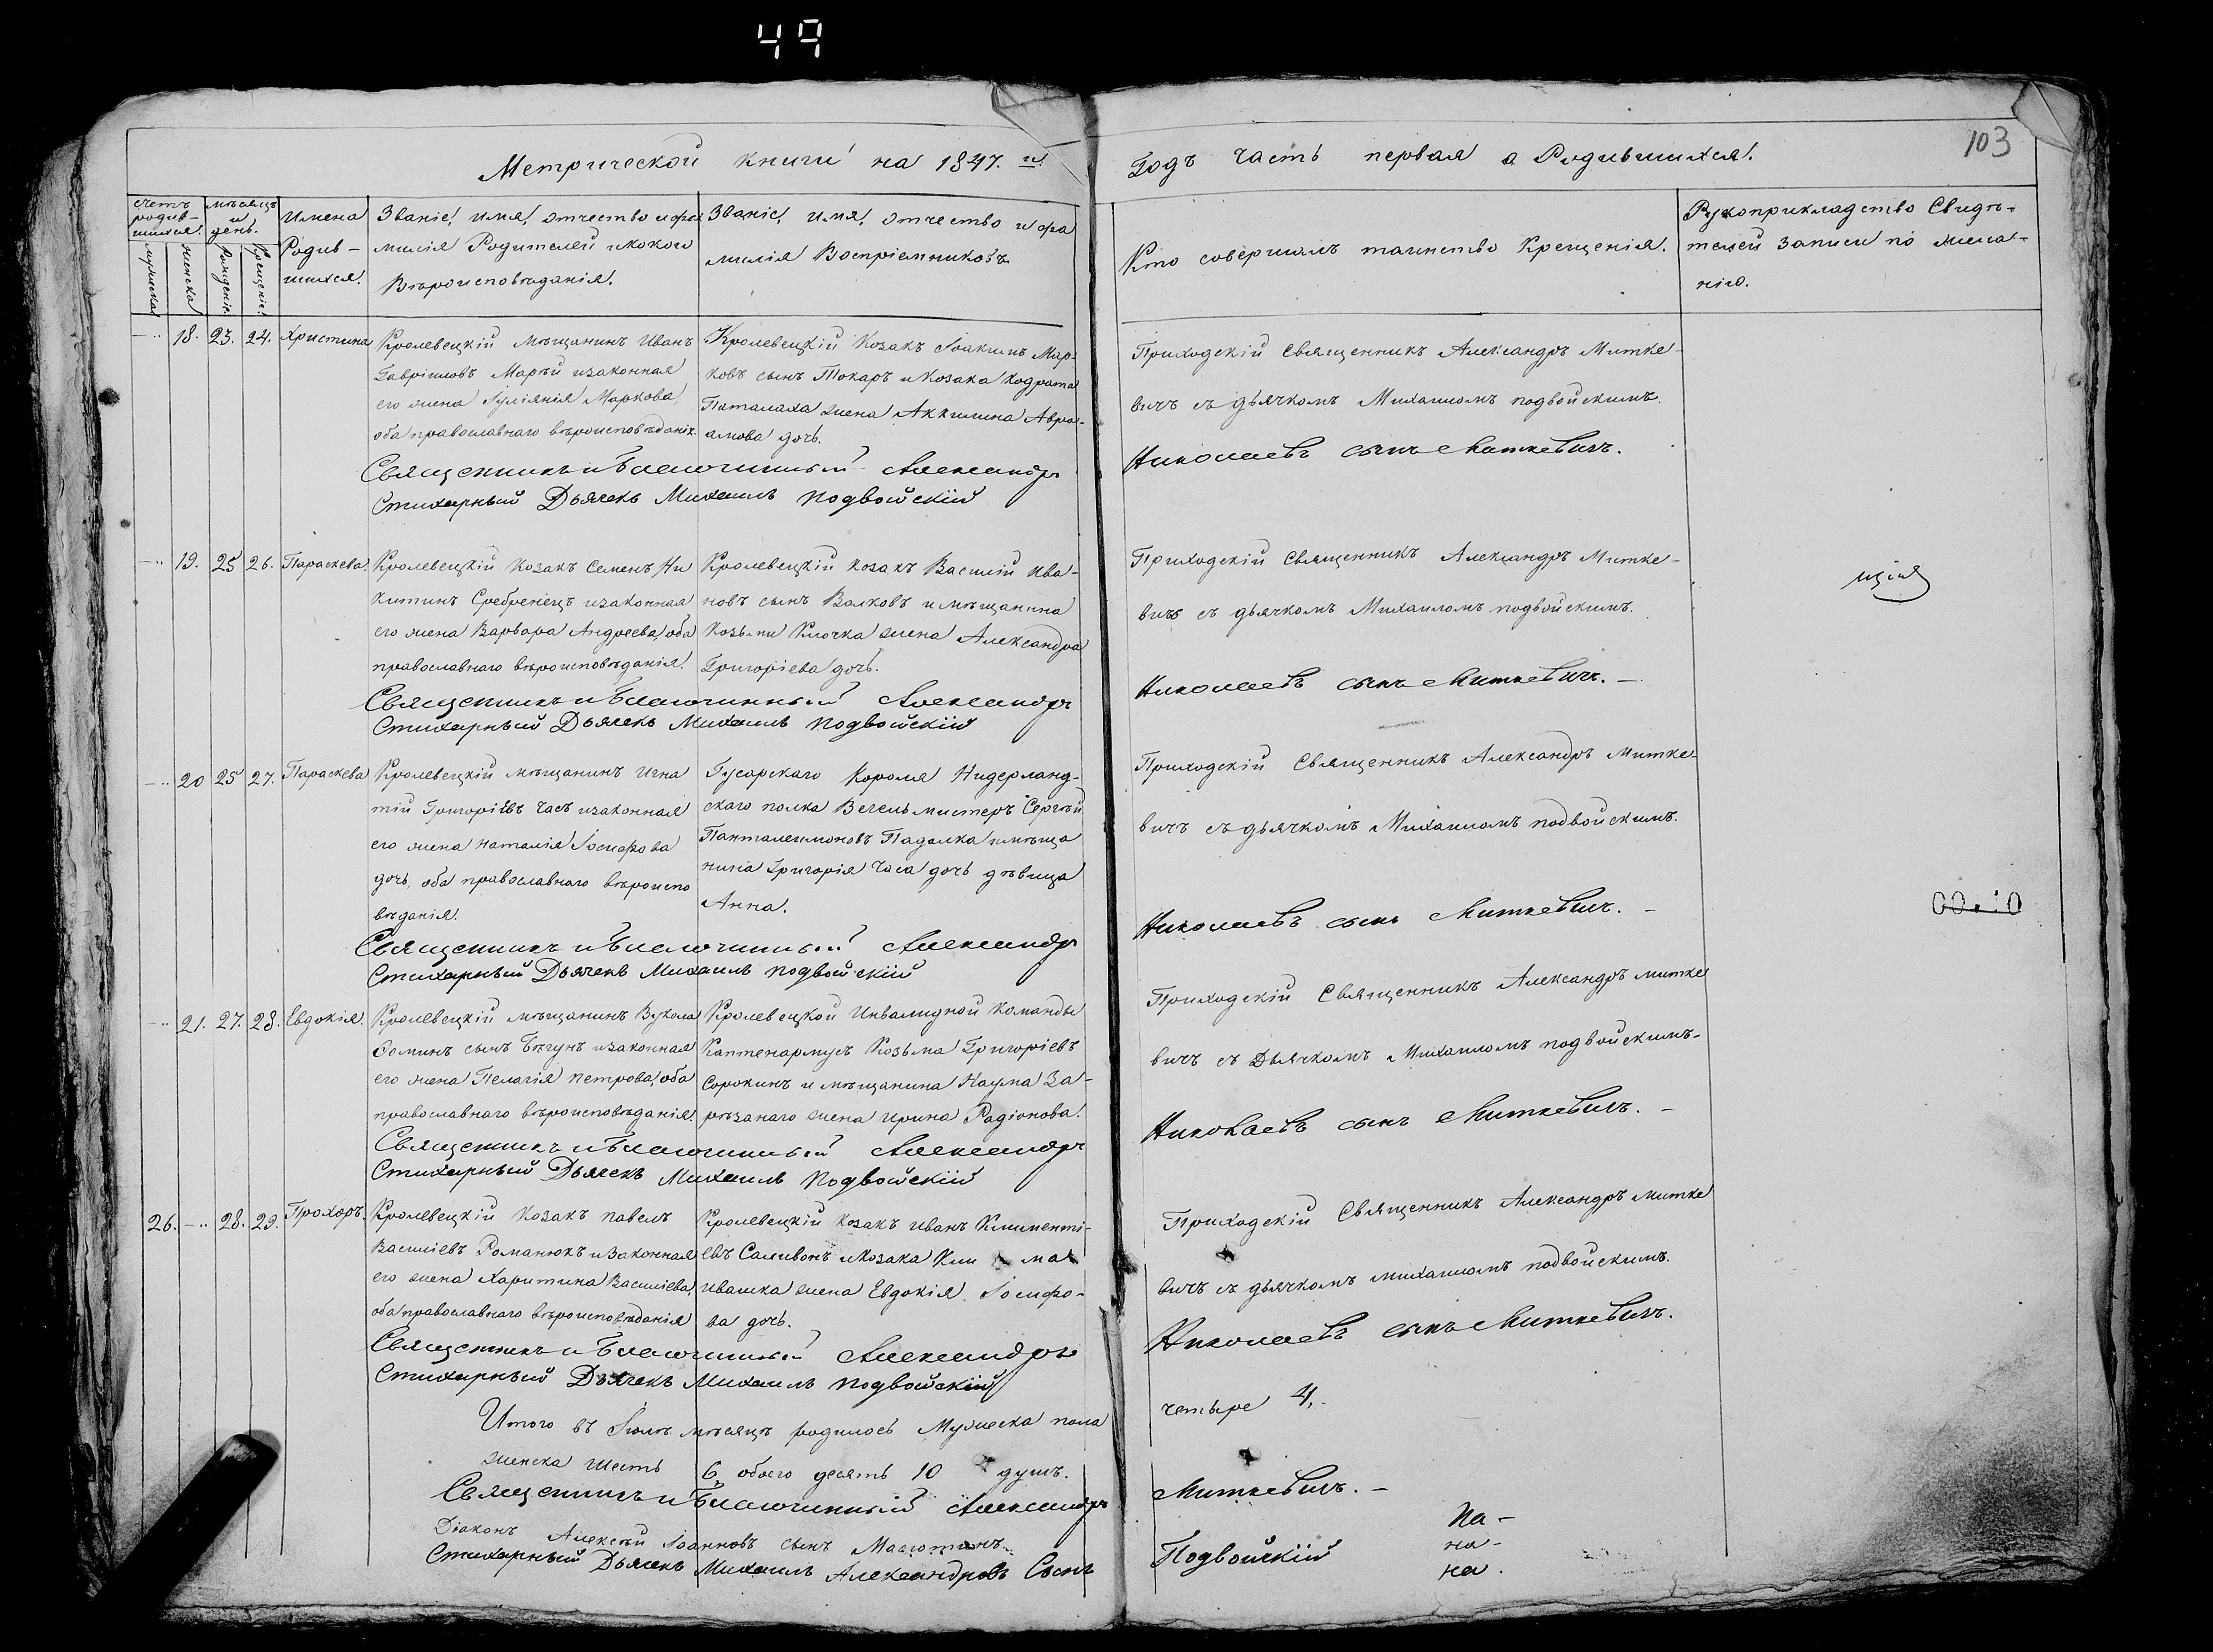 49
103
Метрической книги на 1847.й
Годъ часть первая о Родившихся.
Счетъ родив-шихся.
мужеска
женска
мѣсяцъ и день.
Рожденіе.
Крещеніе.
Имена
Родив-
шихся.
Званіе, имя, отчество и фа
милія Родителей и какого
Вѣроисповѣданія.
Званіе, имя, отчество и фа
милія Воспріемниковъ
Кто совершалъ таинство Крещенія.
Рукоприкладство Свидѣ-
телей записи по жела-
нію.
18. 23. 24. Христина
Кролевецкій мѣщанинъ Иванъ
Гавріиловъ Марѣй и законная
его жена Іуліянія Маркова,
оба православнаго вѣроисповѣданія.
Кролевецкій Козакъ Іоакимъ Мар-
ковъ сынъ Токаръ и Козака Кодрата
Паталаха жена Акилина Авра-
амова дочь.
Приходскій Священникъ Александръ Митке-
вичъ съ дьячкомъ Михаиломъ подвойскимъ.
Священникъ и Благочинный Александръ
Николаевъ сынъ Миткевичъ.
Стихарный Дьячекъ Михаилъ подвойскій
19. 25 26. Параскева.
Кролевецкій Козакъ Семенъ Ни
китинъ Сребренецъ и законная
его жена Варвара Андреева, оба
православнаго вѣроисповѣданія.
Кролевецкій козакъ Василій Ива-
новъ сынъ Волковъ и мѣщанина
Козьмы Клочка жена Александра
Григоріева дочь.
Приходскій Священникъ Александръ Митке-
вичъ съ дьячкомъ Михаиломъ подвойскимъ.
Священникъ и Благочинный Александръ
Николаевъ сынъ Миткевичъ. –
Стихарный Дьячекъ Михаилъ подвойскій
20 25 27. Параскева
Кролевецкій мѣщанинъ Игна
тій Григоріевъ Часъ и законная
его жена Наталія Іосифова
дочь, оба православнаго вѣроиспо
вѣданія.
Гусарскаго Короля Нидерланд-
скаго полка Вагенъмистеръ Сергѣй
Панталеимоновъ Падалка и мѣща
нина Григорія Часа дочь дѣвица
Анна.
Приходскій Священникъ Александръ Митке-
вичъ съ дьячкомъ Михаиломъ подвойскимъ.
Священникъ и Благочинный Александръ
Николаевъ сынъ Миткевичъ. –
Стихарный Дьячекъ Михаилъ подвойскій
21. 27. 28. Евдокія.
Кролевецкій мѣщанинъ Вукола
Ѳоминъ сынъ Бѣгунъ и законная
его жена Пелагія петрова, оба
православнаго вѣроисповѣданія.
Кролевецкой Инвалидной Команды
Каптенармусъ Козьма Григоріевъ
Сорокинъ и мѣщанина Наума За-
рѣзанаго жена Ирина Радіонова.
Приходскій Священникъ Александръ митке
вичъ съ Дьячкомъ Михаиломъ подвойскимъ-
Священникъ и Благочинный Александръ
Николаевъ сынъ Миткевичъ. –
Стихарный Дьячекъ Михаилъ Подвойскій
26. 28. 29. Прохоръ.
Кролевецкій Козакъ павелъ
Василіевъ Романюкъ и законная
его жена Харитина Василіева,
оба православнаго вѣроисповѣданія
Кролевецкій козакъ Иванъ Клименті-
евъ Саливонъ и Козака Кли ма
Ивашка жена Евдокія Іосифо-
ва дочь.
Приходскій Священникъ Александръ митке
вичъ съ дьячкомъ михаиломъ подвойскимъ.
Священникъ и Благочинный Александръ
Николаевъ сынъ Миткевичъ.
Стихарный Дьячекъ Михаилъ Подвойскій
Итого въ Іюлѣ мѣсяцѣ родилось Мужеска пола
четыре 4,
женска шесть 6 обоего десять 10 душъ.
Священникъ и Благочинный Александръ
Миткевичъ. –
Діаконъ Алексѣй Іоанновъ сынъ
Стихарный Дьячекъ Михаилъ Александровъ Сынъ
Подвойскій